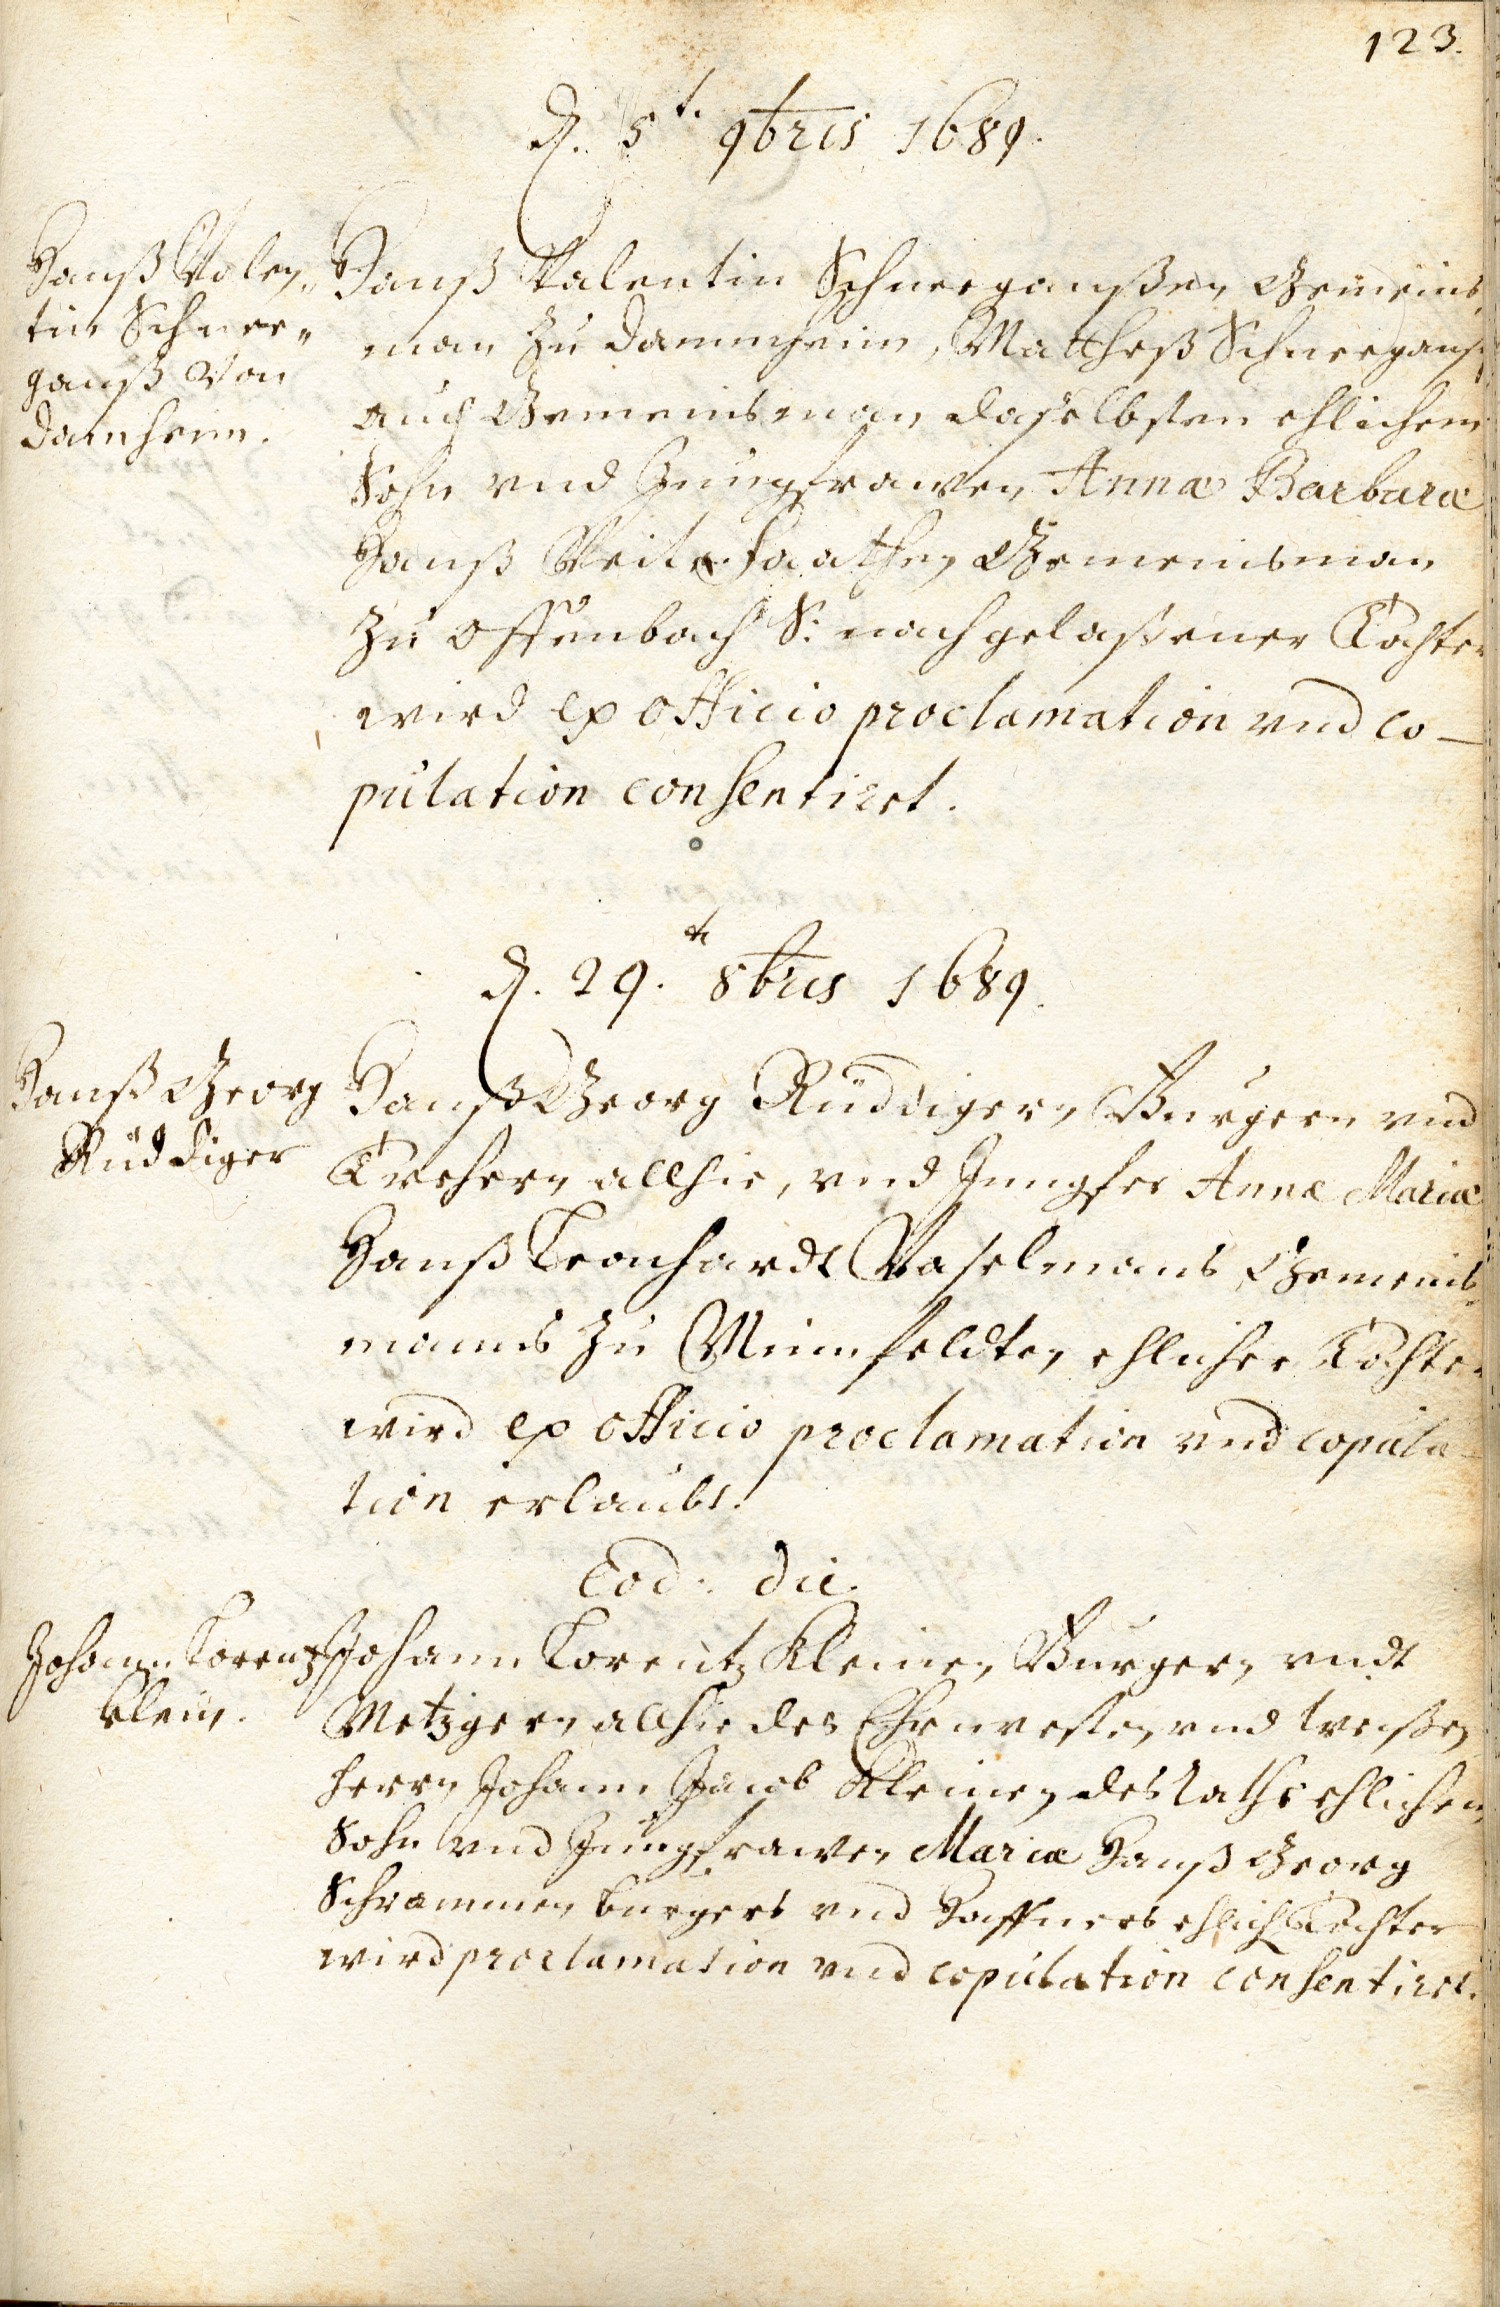 123.
d. 5t. 9bris 1689.
Hanß Valen„
tin Schnee„
ganß von
Damheim.
Hanß Valentin Schneeganßen Gemeins
man zu Dammheim, Mattheß Schneeganß
auch Gemeinsman daselbsten ehlichem
Sohn vnd Jungfrawen Annæ Barbaræ
Hanß Veit Gemeinsman
zu Offenbach S: nachgelaßener Tochter
wird ex officio proclamation vnd co–
pulation consentirt.
d. 29.tn 8bris 1689.
Hanß Georg
Rüddiger
Hanß Georg Rüddigern Burgern vnd
Trehern allhie, vnd Jungfer Annæ Mariæ
Hanß Leonhardt Vaselmans Gemeins
manns zu Minnfeldten ehlicher Tochter
wird ex officio proclamation vnd copula–
tion erlaubt.
Eod: die.
Johann Lorentz
Klein.
Johann Lorentz Kleinen Burgern vndt
Metzgern allhie des Ehrnvesten vnd weißen
herrn Johann Jacob Kleinen des Raths ehlichen
Sohn vnd Jungfrawen Mariæ Hanß Georg
Schrammen burgers vnd Haffners ehlich Tochter
wird proclamation vnd copulation consentirt.